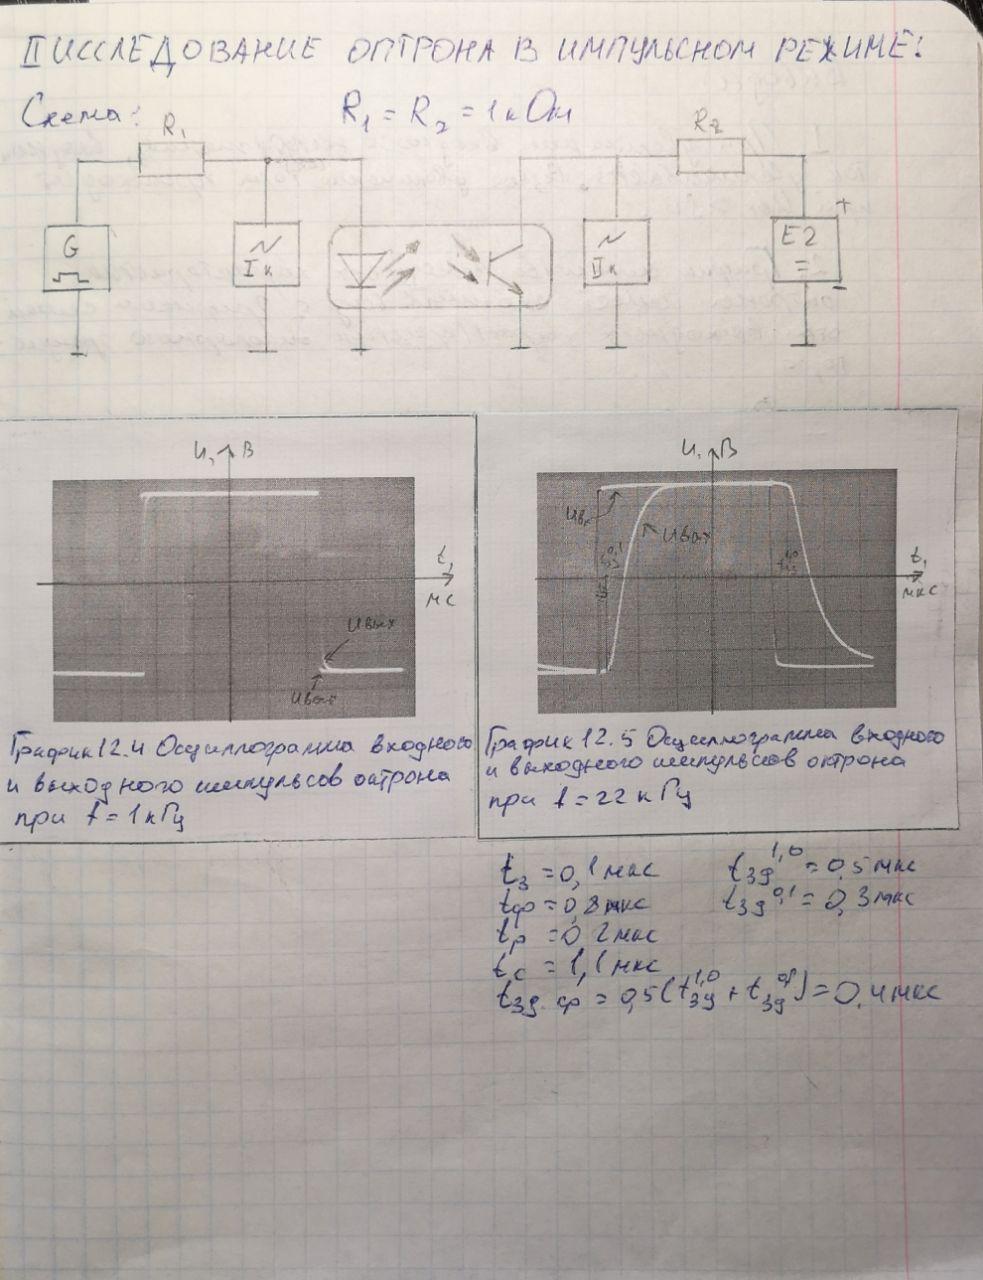 II ИССЛЕДОВАНИЕ ОПТРОНА В ИМПУЛЬСНОМ РЕЖИМЕ:
Схема: R₁ = R₂ = 1 кОм
R₁ R₂
G ~ Iк ~ IIк E2 = + -
U, В
t, мс
Uвых
Uвых
График 12.4 Осциллограмма входного
и выходного импульсов октрона
при f = 1 кГц
U, В
Uвх
Uвых
tзд^0,1 tзд^1,0
t, мкс
График 12.5 Осциллограмма входного
и выходного импульсов октрона
при f = 22 кГц
tз = 0,1 мкс tзд^1,0 = 0,5 мкс
tф = 0,8 мкс tзд^0,1 = 0,3 мкс
tр = 0,2 мкс
tс = 1,1 мкс
tзд.ср = 0,5(tзд^1,0 + tзд^0,1) = 0,4 мкс